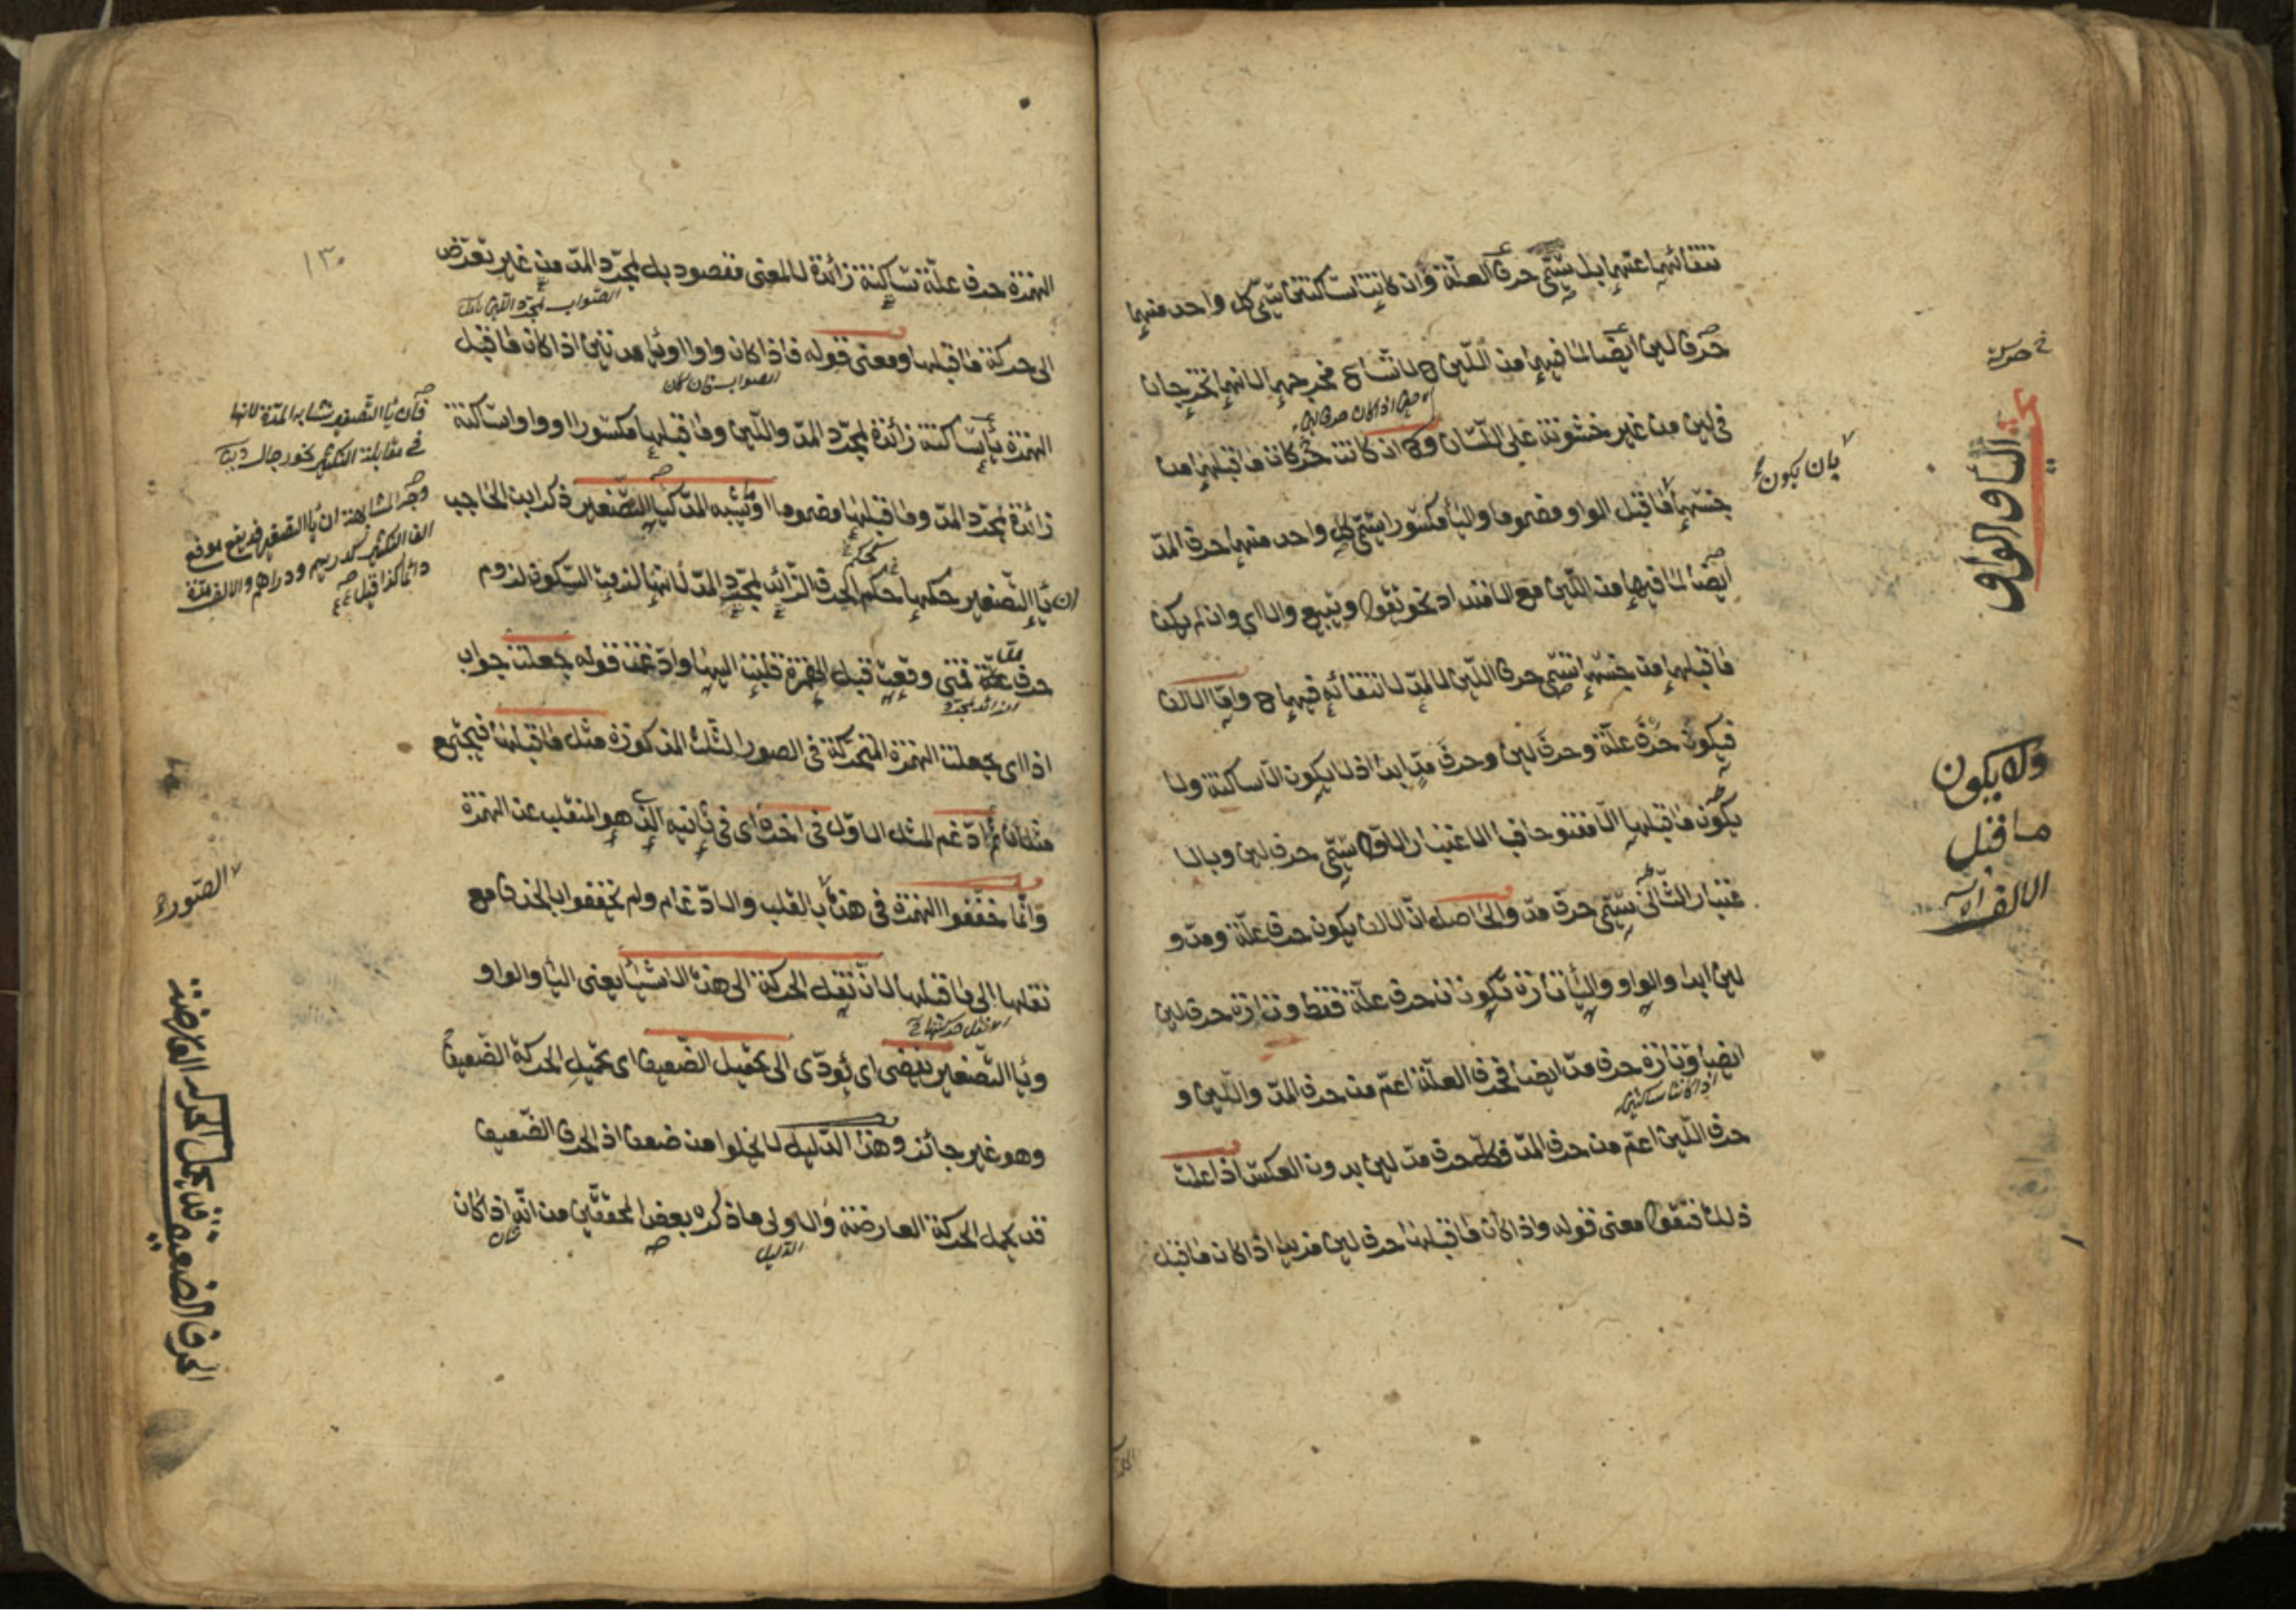 انتفائهما عنهما بل يسمى حرف العلة وان كانتا ساكنتين يسمى كل واحد منهما
حرف لين ايضا لما فيهما من اللين لاتساع مخرجهما لانهما تخرجان
فى لين من غير خشونة على اللسان و اذ كانت حركات ما قبلهما من
جنسهما ما قبل الواو مضموما والياء مكسورا يسمى كل واحد منهما حرف المد
ايضا لما فيهما من اللين مع الامتداد نحو يقول ويبيع والا اى وان لم يكن
ما قبلهما من جنسهما يسمى حرف اللين لا المد لانتفائه فيهما واما الالف
فيكون حرف علة وحرف لين وحرف مد ابدا اذ لا يكون الا ساكنة ولا
يكون ما قبلها الا مفتوحا فبالاعتبار الاول يسمى حرف لين وبالا
عتبار الثانى يسمى حرف مد والحاصل ان الالف يكون حرف علة ومد و
لين ابدا والواو والياء تارة تكونان حرف علة فقط وتارة حرف لين
ايضا وتارة حرف مد ايضا فحرف العلة اعم من حرف المد واللين و
اذا كانتا ساكنتين
حرف اللين اعم من حرف المد فكل حرف مد لين بدون العكس اذا علمت
ذلك فنقول معنى قوله واذا كان ما قبلها حرف لين مزيد اذا كان ما قبل
بان يكون
الياء والواو
ولا يكون
ما قبل
الالف
١٣٠
الهمزة حرف علة ساكنة زائدة لا لمعنى مقصود بل لمجرد المد من غير تعرض
الصواب لمجرد اللين
الى حركة ما قبلها ومعنى قوله فاذا كان واوا او ياء مدتين اذا كان ما قبل
الصواب فان كان
الهمزة ياء ساكنة زائدة لمجرد المد واللين وما قبلها مكسورا او واوا ساكنة
زائدة لمجرد المد وما قبلها مضموما او يشبه المد كياء التصغير ذكر ابن الحاجب
ان ياء التصغير حكمها حكم الحرف الزائد لمجرد المد لانها لزمت السكون لزوم
حرف علة فمتى وقعت قبل الهمزة قلبت اليها وادغمت قوله جعلت جواب
الزائد لمجرد
اذا اى جعلت الهمزة المتحركة فى الصور الثلث المذكورة مثل ما قبلها فيجتمع
مثلان ثم ادغم المثل الاول فى اخره اى فى ثانيه الذى هو المنقلب عن الهمزة
وانما خففوا الهمزة فى هذه بالقلب والادغام ولم يخففوا بالحذف مع
نقلها الى ما قبلها لان نقل الحركة الى هذه الاشياء يعنى الياء والواو
وياء التصغير يفضى اى يؤدى الى تحميل الضعيف اى تحميل الحركة الضعيف
وهو غير جائز وهذا الدليل لا يخلوا من ضعف اذ الحرف الضعيف
قد يحمل الحركة العارضة والاولى ما ذكره بعض المحققين من انه اذا كان
الدليل
فان ياء التصغير تشابه المدة لانها
فى مقابلة التكثير نحو رجال
وجه المشابهة ان ياء التصغير قد يقع موقع
الف التكثير كدريهم ودراهم والالف مدة
دائما كذا قيل
الصور
الحرف الضعيفة قد يحمل الحركة العارضة